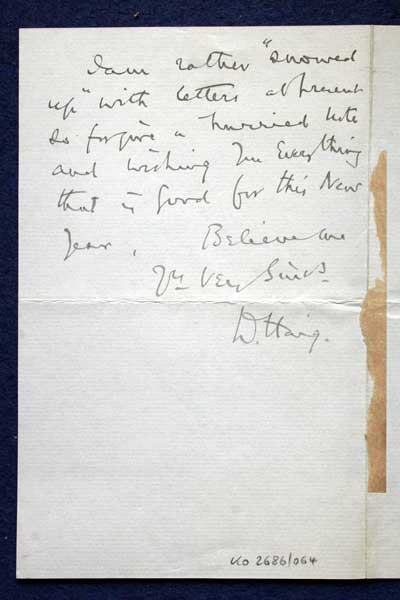 I am rather "snowed
up" with letters at present
so forgive a hurried note
and wishing you Everything
that is good for this New
Year, Believe me
Yrs very Sincly.
D. Haig.
KO 2686/064